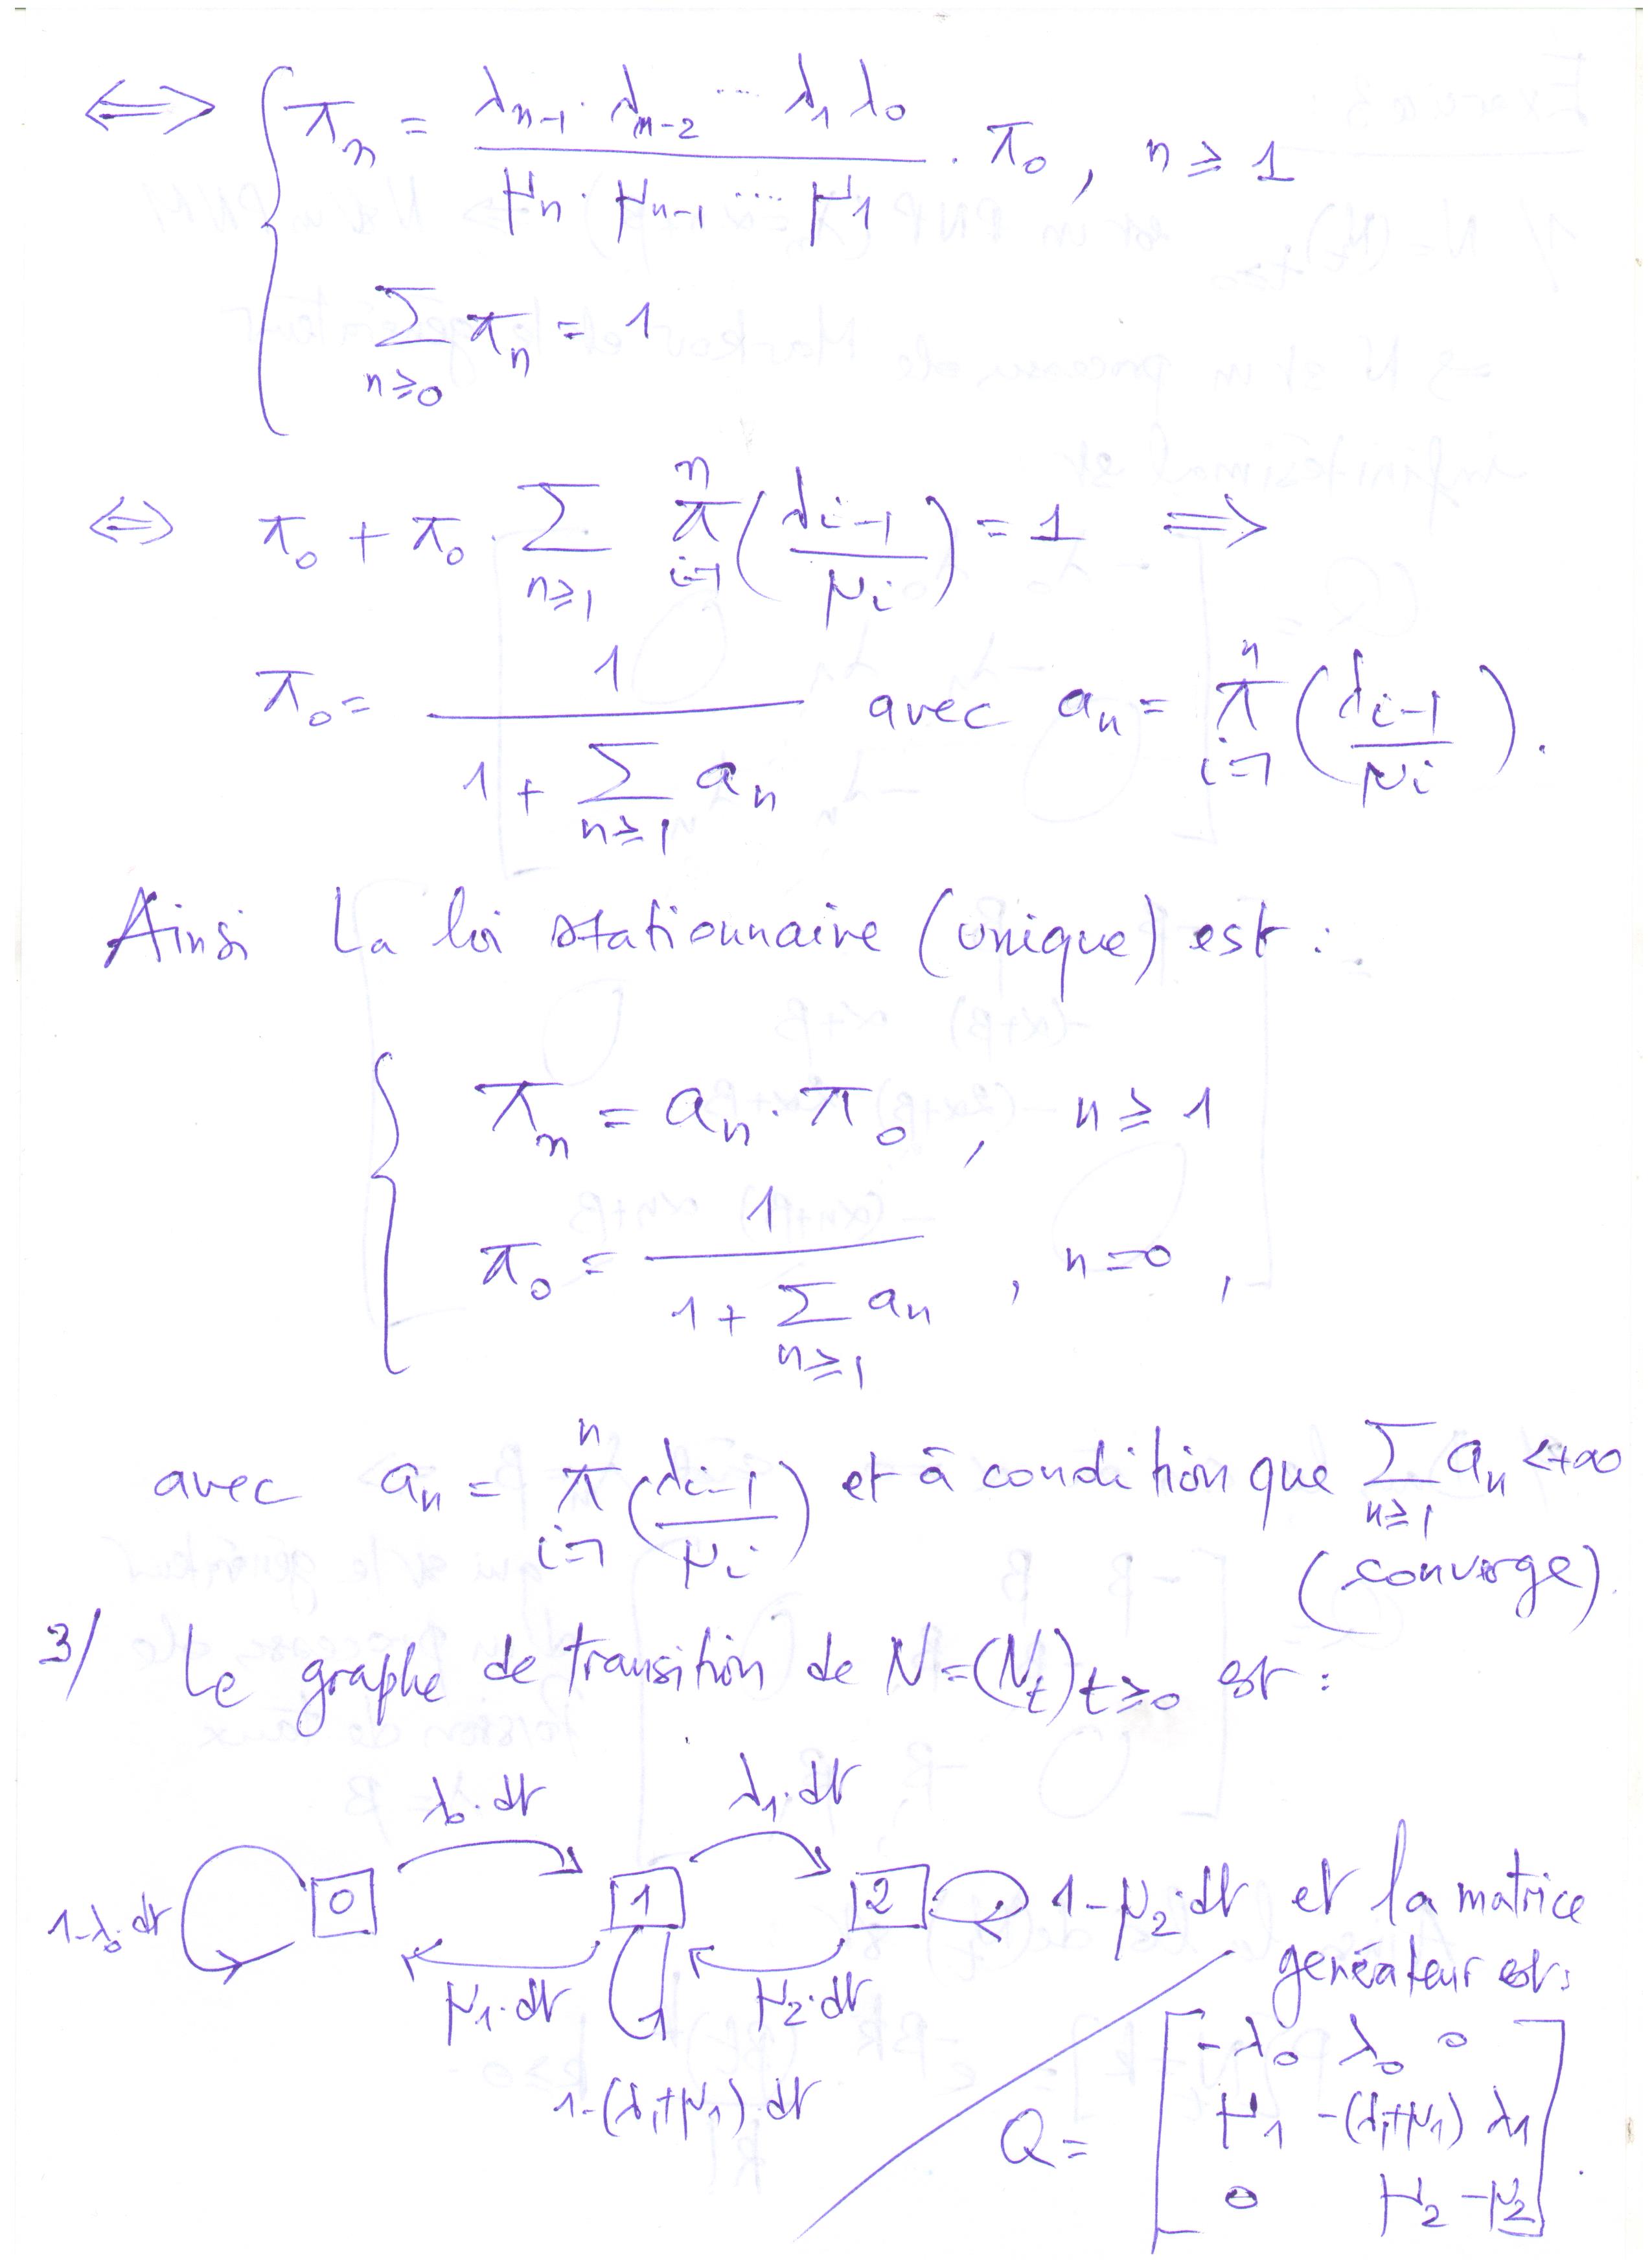 ⟺ { π_n = (λ_{n-1} · λ_{n-2} ... λ_1 λ_0) / (μ_n · μ_{n-1} ... μ_1) . π_0 , n ≥ 1
∑_{n≥0} π_n = 1
⟺ π_0 + π_0 . ∑_{n≥1} π_{i=1}^{n} (λ_{i-1} / μ_i) = 1 ⟹
π_0 = 1 / (1 + ∑_{n≥1} a_n) avec a_n = π_{i=1}^{n} (λ_{i-1} / μ_i) .
Ainsi La loi stationnaire (unique) est :
{ π_n = a_n . π_0 , n ≥ 1
π_0 = 1 / (1 + ∑_{n≥1} a_n) , n = 0 ,
avec a_n = π_{i=1}^{n} (λ_{i-1} / μ_i) et à condition que ∑_{n≥1} a_n < +∞
(converge).
3/ Le graphe de transition de N = (N_t)_{t≥0} est :
λ_0 . dt λ_1 . dt
1-λ_0 . dt 0 1 2 1-μ_2 . dt et la matrice
μ_1 . dt μ_2 . dt générateur est :
1-(λ_1+μ_1) dt
Q = [ -λ_0 λ_0 0
μ_1 -(λ_1+μ_1) λ_1
0 μ_2 -μ_2 ] .